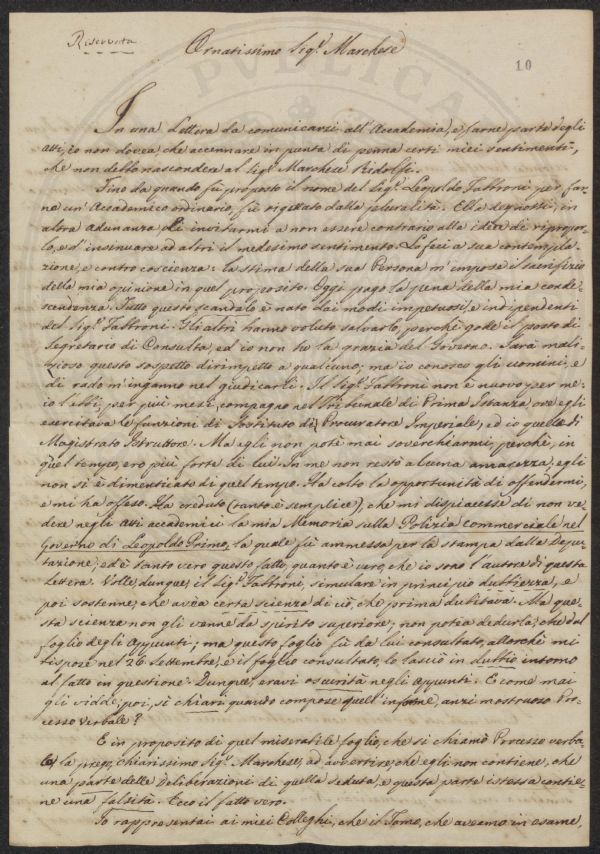 Riservata
Ornatissimo Sig.r Marchese
10
In una Lettera da comunicarsi all'Accademia, e farne parte degli
atti, io non dovea che accennare in punta di penna certi miei sentimenti,
che non debbo nascondere al Sig.r Marchese Ridolfi.
Fino da quando fù proposto il nome del Sig.r Leopoldo Fabbroni per far-
ne un'Accademico ordinario, fù rigettato dalla pluralità. Ella degnossi, in
altra adunanza, di invitarmi a non essere contrario alla idea di ripropor-
lo, e d'insinuare ad altri il medesimo sentimento. Lo feci a sua contempla-
zione, e contro coscienza: la stima della sua Persona m'impose il sacrifizio
della mia opinione in quel proposito. Oggi pago la pena della mia conde-
scendenza. Tutto questo scandalo è nato dai modi impetuosi, e indipendenti
del Sig.r Fabbroni. Gli altri hanno voluto salvarlo, perchè gode il posto di
Segretario di Consulta, ed io non ho la grazia del Governo. Sarà mali-
zioso questo sospetto dirimpetto a qualcuno; ma io conosco gli uomini, e
di rado m'inganno nel giudicarli. Il Sig.r Fabbroni non è nuovo per me:
io l'ebbi, per più mesi, compagno nel Tribunale di Prima Istanza, ove egli
esercitava le funzioni di Sostituto di Procuratore Imperiale, ed io quelle di
Magistrato Istruttore. Ma egli non potè mai soverchiarmi, perchè, in
quel tempo, ero più forte di lui. In me non restò alcuna amarezza, egli
non si è dimenticato di quel tempo. Ha colto la opportunità di offendermi,
e mi ha offeso. Ha creduto (tanto è semplice), che mi dispiacesse di non ve-
dere negli atti accademici la mia Memoria sulla Polizia commerciale nel
Governo di Leopoldo Primo, la quale fù ammessa per la stampa dalla Depu-
tazione; ed è tanto vero questo fatto, quanto è vero, che io sono l'autore di questa
lettera. Volle, dunque, il Sig.r Fabbroni, simulare in principio dubbiezza, e
poi sostenne, che avea certa scienza di ciò, che prima dubitava. Ma que-
sta scienza non gli venne da spirito superiore; non potea dedurla, che dal
foglio degli Appunti; ma questo foglio fù da lui consultato, allorchè mi
rispose nel 26 Settembre, e il foglio consultato, lo lasciò in dubbio intorno
al fatto in questione. Dunque, eravi oscurità negli appunti. E come mai
gli vidde, poi, sì chiari quando compose quell'informe, anzi mostruoso Pro-
cesso verbale?
E in proposito di quel miserabile foglio, che si chiamò Processo verba-
le, la prego, chiarissimo Sig.r Marchese, ad avvertire, che egli non contiene, che
una parte delle Deliberazioni di quella seduta, e questa parte istessa contie-
ne una falsità. Ecco il fatto vero.
Io rappresentai ai miei Colleghi, che il Tomo, che avevamo in esame,